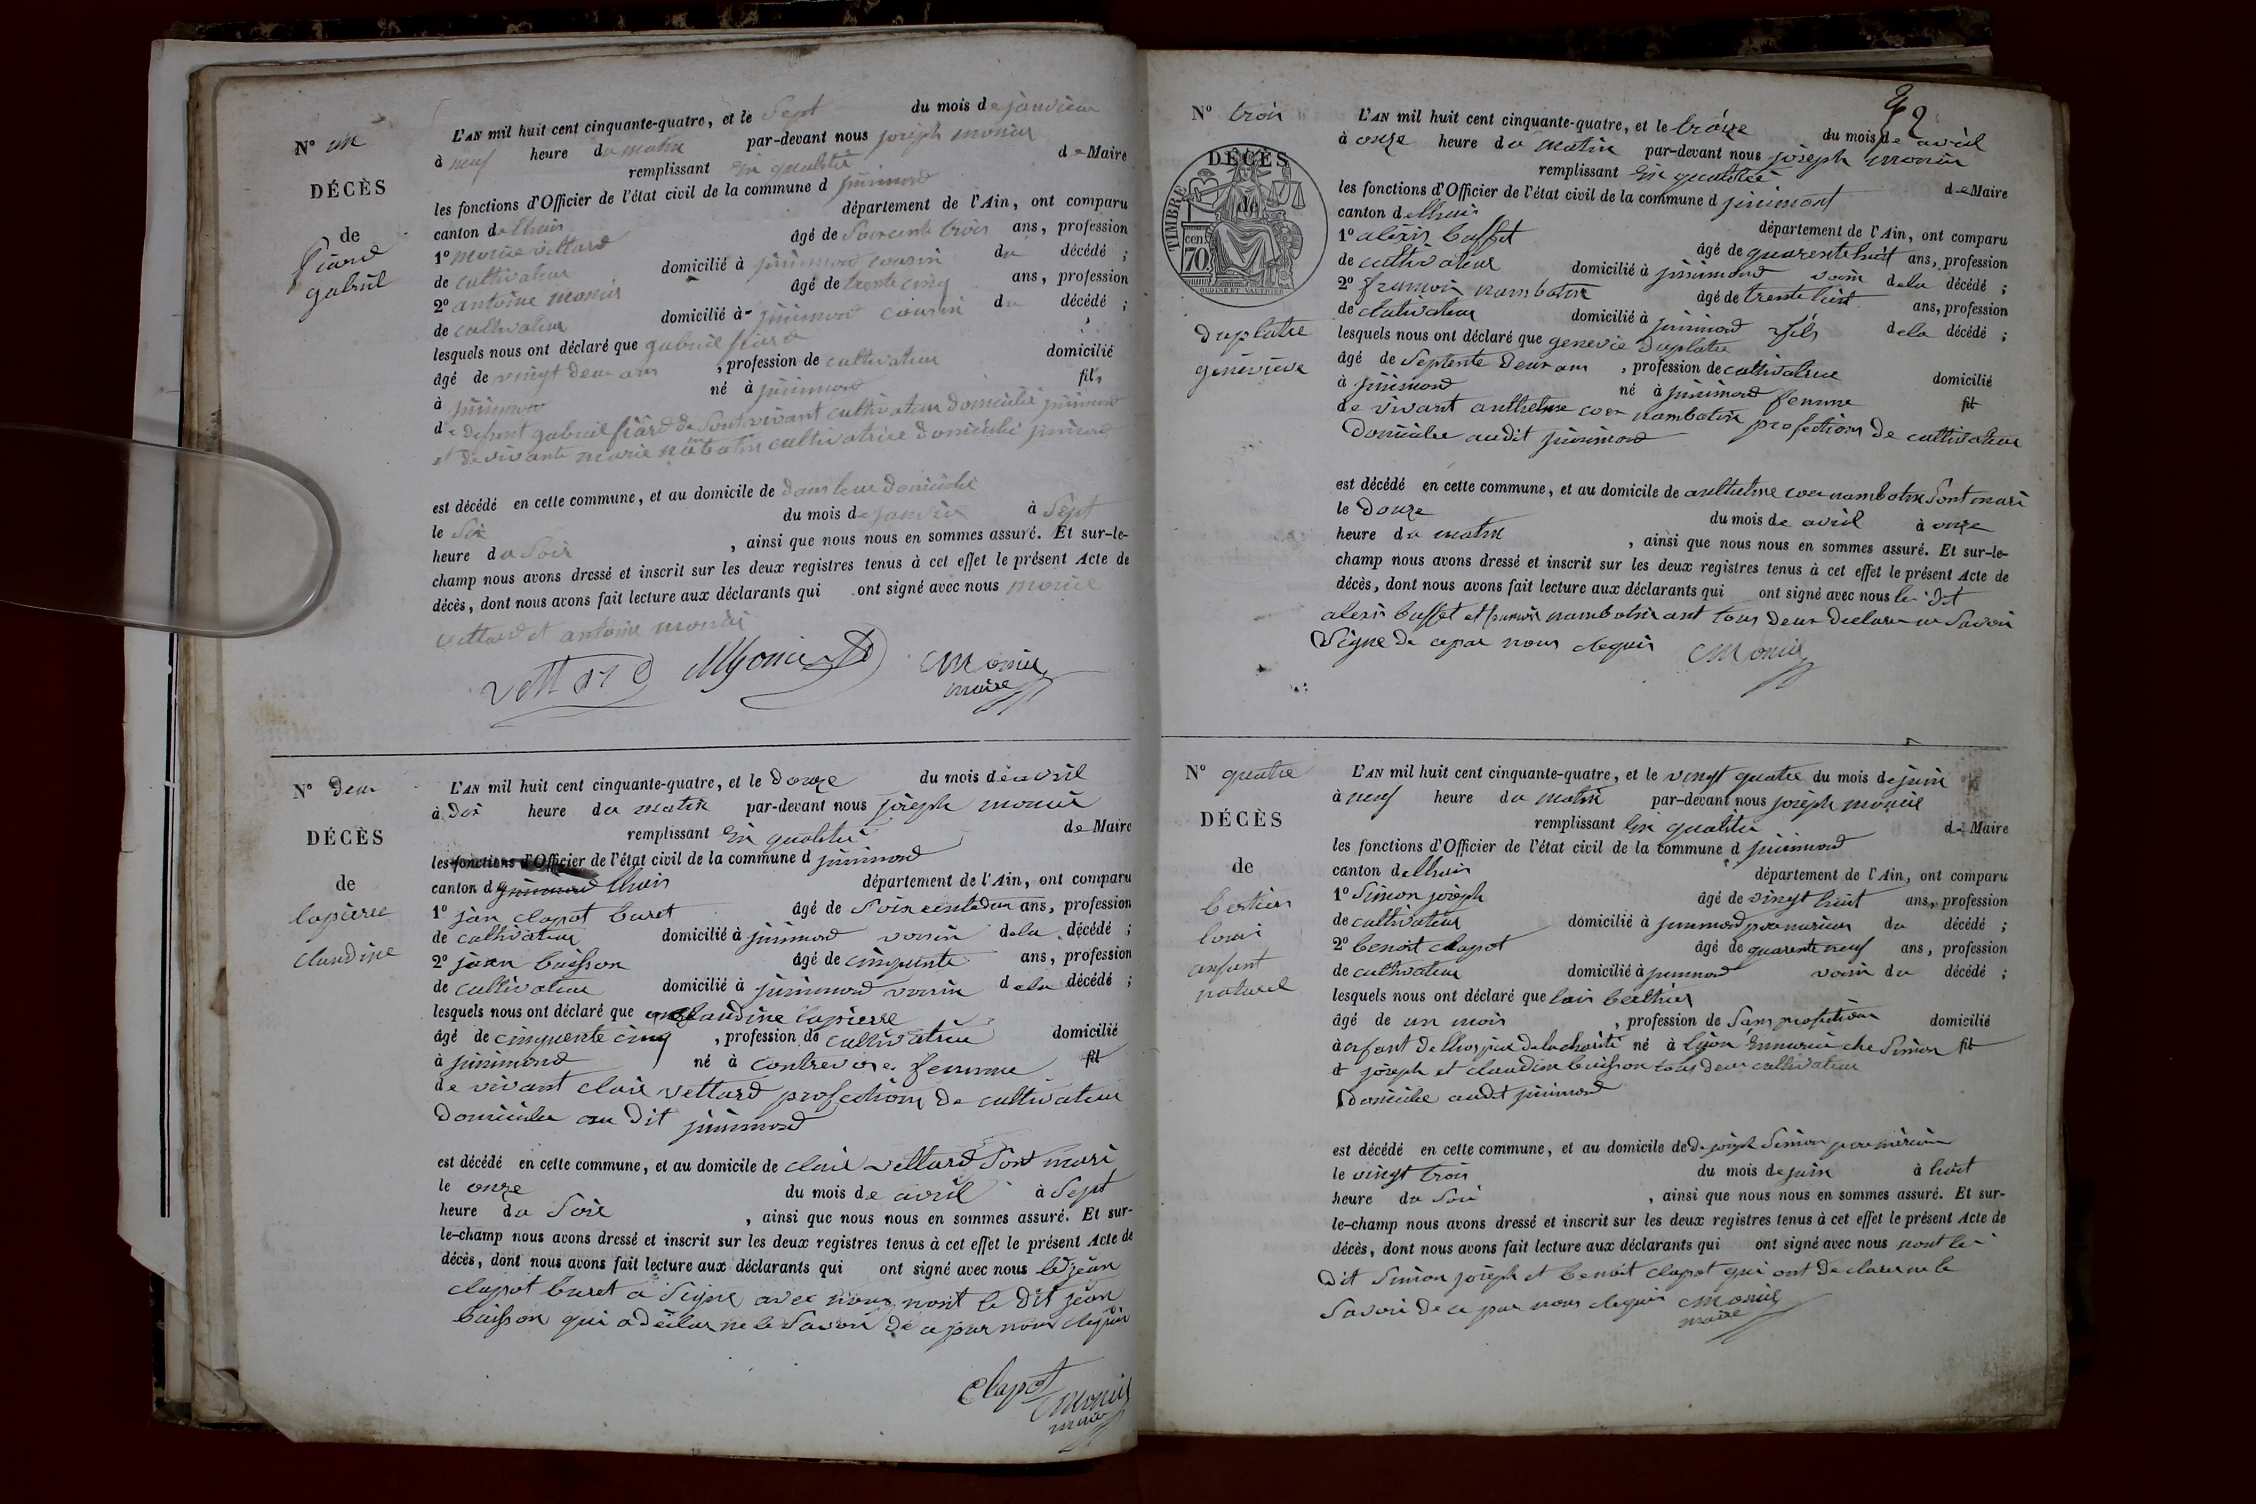 N° un
DÉCÈS
de
fiard
gabriel
L'AN mil huit cent cinquante-quatre, et le Sept du mois de janvier
à neuf heure du matin par-devant nous joseph monier
remplissant En qualité de Maire
les fonctions d'Officier de l'état civil de la commune d jujurieux
canton de lhuis département de l'Ain, ont comparu
1° vettard âgé de Soixante trois ans, profession
de cultivateur domicilié à cousin du décédé ;
2° antoine monier âgé de trente cinq ans, profession
de cultivateur domicilié à cousin du décédé ;
lesquels nous ont déclaré que gabriel fiard
âgé de vingt deux ans , profession de cultivateur domicilié
à né à fils
de defunt gabriel fiard de Sont vivant cultivateur domicilié
et de vivante marie cultivatrice domicilié
est décédé en cette commune, et au domicile de dans leur domicile
le Six du mois de janvier à Sept
heure du Soir , ainsi que nous nous en sommes assuré. Et sur-le-
champ nous avons dressé et inscrit sur les deux registres tenus à cet effet le présent Acte de
décès, dont nous avons fait lecture aux déclarants qui ont signé avec nous
vettard et antoine monier
vettard Monier
maire
N° deux
DÉCÈS
de
lapierre
claudine
L'AN mil huit cent cinquante-quatre, et le douze du mois de avril
à dix heure du matin par-devant nous joseph monier
remplissant En qualité de Maire
les fonctions d'Officier de l'état civil de la commune d
canton d lhuis département de l'Ain, ont comparu
1° jean clapot buret âgé de Soixente deux ans, profession
de cultivateur domicilié à voisin dela décédé ;
2° jean buisson âgé de cinquente ans, profession
de cultivateur domicilié à voisin dela décédé ;
lesquels nous ont déclaré que claudine lapierre
âgé de cinquente cinq , profession de cultivatrice domicilié
à né à femme fil
de vivant clair vettard profession de cultivateur
domicilié au dit
est décédé en cette commune, et au domicile de clair vettard Sont mari
le onze du mois de avril à Sept
heure du Soir , ainsi que nous nous en sommes assuré. Et sur-
le-champ nous avons dressé et inscrit sur les deux registres tenus à cet effet le présent Acte de
décès, dont nous avons fait lecture aux déclarants qui ont signé avec nous jean
clapot buret a Signé avec nous nont le dit jean
buisson qui a declar ne le Savoir de ce par nous
Clapot
Monier
maire
42
N° trois
DÉCÈS
de
TIMBRE
70
cen.
duplatre
genevieve
L'AN mil huit cent cinquante-quatre, et le treize du mois de avril
à onze heure du matin par-devant nous joseph monier
remplissant En qualité de Maire
les fonctions d'Officier de l'état civil de la commune d
canton de lhuis département de l'Ain, ont comparu
1° alexis buffet âgé de quarente huit ans, profession
de cultivateur domicilié à voisin dela décédé ;
2° francois nambotin âgé de trente huit ans, profession
de domicilié à fils dela décédé ;
lesquels nous ont déclaré que duplatre
âgé de Septente deux ans , profession de cultivatrice domicilié
à né à femme fil
de vivant anthelme nambotin profession de cultivateur
domicilié audit
est décédé en cette commune, et au domicile de anthelme nambotin Sont mari
le douze du mois de avril à onze
heure du matin , ainsi que nous nous en sommes assuré. Et sur-le-
champ nous avons dressé et inscrit sur les deux registres tenus à cet effet le présent Acte de
décès, dont nous avons fait lecture aux déclarants qui ont signé avec nous
alexis buffet et francois nambotin ont tous deux declare ne Savoir
Signe de ce par nous Monier
N° quatre
DÉCÈS
de
bertier
loui
anfant
naturel
L'AN mil huit cent cinquante-quatre, et le vingt quatre du mois de juin
à neuf heure du matin par-devant nous joseph monier
remplissant En qualité de Maire
les fonctions d'Officier de l'état civil de la commune d
canton de lhuis département de l'Ain, ont comparu
1° Simon joseph âgé de vingt huit ans, profession
de cultivateur domicilié à du décédé ;
2° benoit clapot âgé de quarente neuf ans, profession
de cultivateur domicilié à voisin du décédé ;
lesquels nous ont déclaré que berthier
âgé de un mois , profession de Sans profession domicilié
à dela charité né à lyon che Simon fil
d joseph et claudine buisson tous deux cultivateur
domicilié audit
est décédé en cette commune, et au domicile de joseph Simon
le vingt trois du mois de juin à huit
heure du Soir , ainsi que nous nous en sommes assuré. Et sur-
le-champ nous avons dressé et inscrit sur les deux registres tenus à cet effet le présent Acte de
décès, dont nous avons fait lecture aux déclarants qui ont signé avec nous nont le
dit Simon joseph et benoit clapot qui ont declare ne le
Savoir de ce par nous Monier
maire